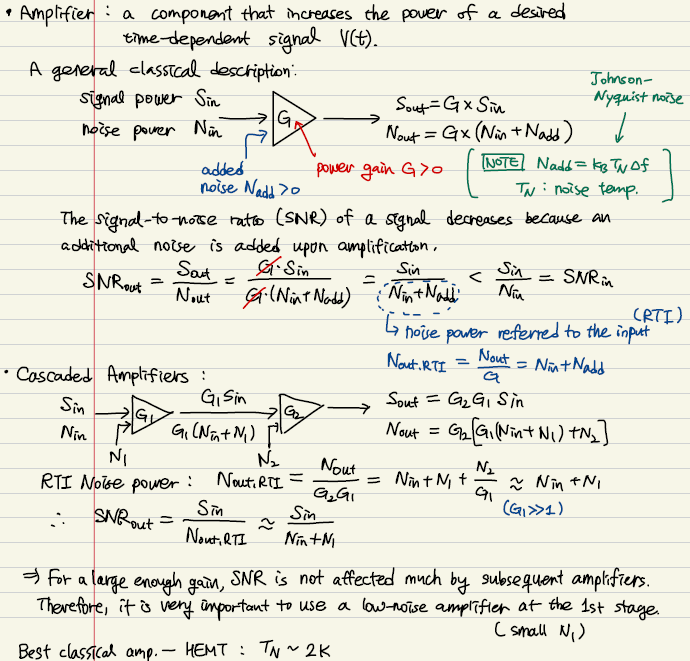 • Amplifier : a component that increases the power of a desired
time-dependent signal V(t).
A general classical description:
signal power Sin
noise power Nin
G
Sout = G × Sin
Nout = G × (Nin + Nadd)
Johnson-
Nyquist noise
added
noise Nadd > 0
power gain G > 0
[NOTE] Nadd = kB TN Δf
TN : noise temp.
The signal-to-noise ratio (SNR) of a signal decreases because an
additional noise is added upon amplification.
SNRout = Sout / Nout = G · Sin / G · (Nin + Nadd) = Sin / Nin + Nadd < Sin / Nin = SNRin
↳ noise power referred to the input (RTI)
Nout.RTI = Nout / G = Nin + Nadd
• Cascaded Amplifiers :
Sin
Nin
G1
G1 Sin
G1 (Nin + N1)
G2
N1
N2
Sout = G2 G1 Sin
Nout = G2 [G1 (Nin + N1) + N2]
RTI Noise power : Nout,RTI = Nout / G2 G1 = Nin + N1 + N2 / G1 ≈ Nin + N1
(G1 >> 1)
∴ SNRout = Sin / Nout,RTI ≈ Sin / Nin + N1
⇒ For a large enough gain, SNR is not affected much by subsequent amplifiers.
Therefore, it is very important to use a low-noise amplifier at the 1st stage.
(small N1)
Best classical amp. — HEMT : TN ~ 2K